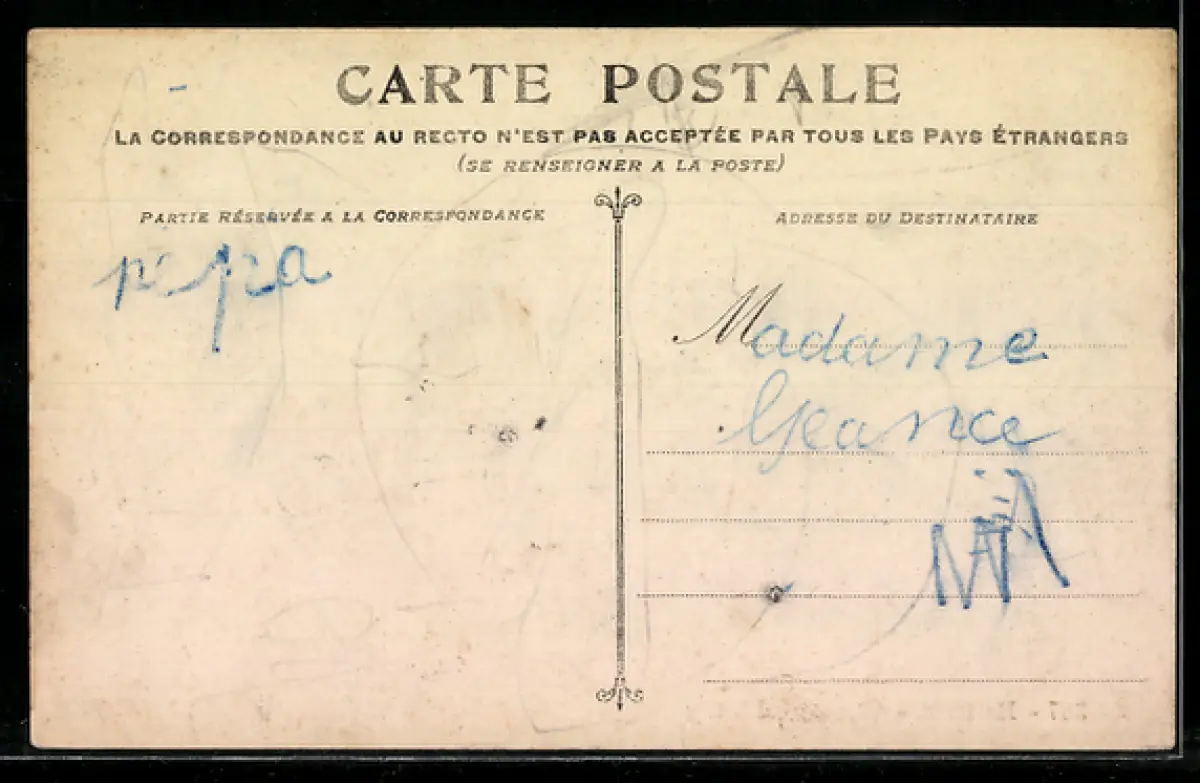 CARTE POSTALE
LA CORRESPONDANCE AU RECTO N'EST PAS ACCEPTÉE PAR TOUS LES PAYS ÉTRANGERS
(SE RENSEIGNER A LA POSTE)
PARTIE RÉSERVÉE A LA CORRESPONDANCE
ADRESSE DU DESTINATAIRE
Madame